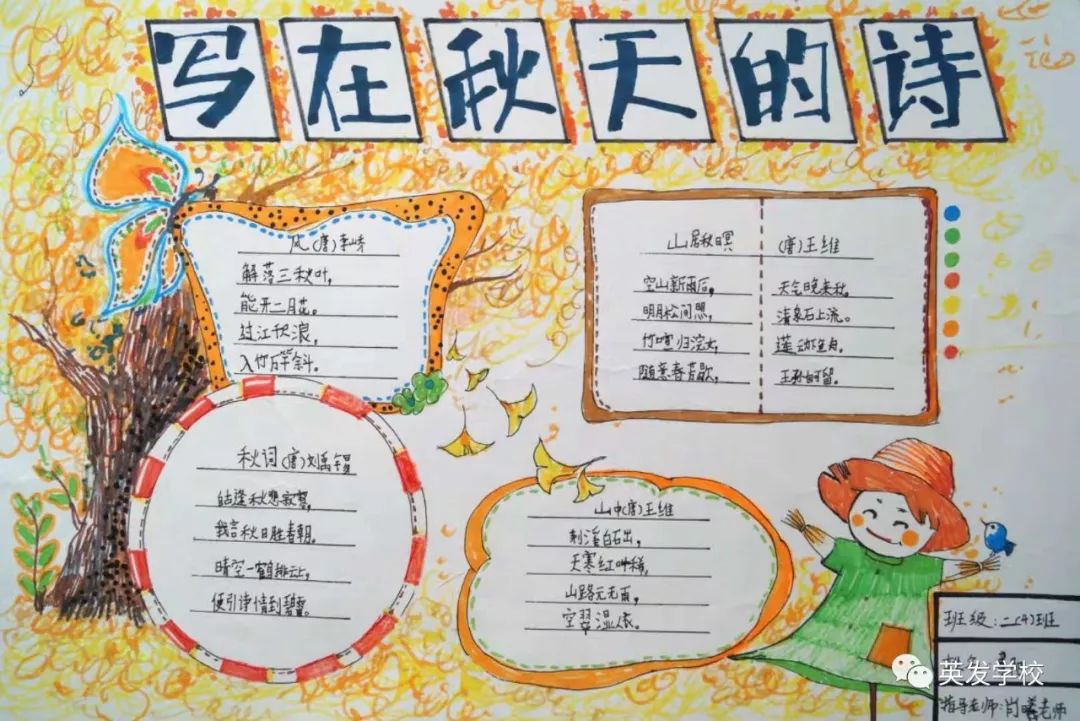 写在秋天的诗
风(唐)李峤
解落三秋叶,
能开二月花。
过江 浪,
入竹万竿斜。
山居秋暝 (唐)王维
空山新雨后, 天气晚来秋。
明月松间照, 清泉石上流。
竹喧归浣女, 莲动
随意春芳歇, 王孙自可留。
秋词(唐)刘禹锡
逢秋悲寂寥,
我言秋日胜春朝。
晴空一鹤排云上,
便引诗情到碧霄。
山中(唐)王维
荆溪白石出,
天寒红叶稀,
山路元无雨,
空翠湿人衣。
班级:二(4)班
指导老师:肖 老师
英发学校